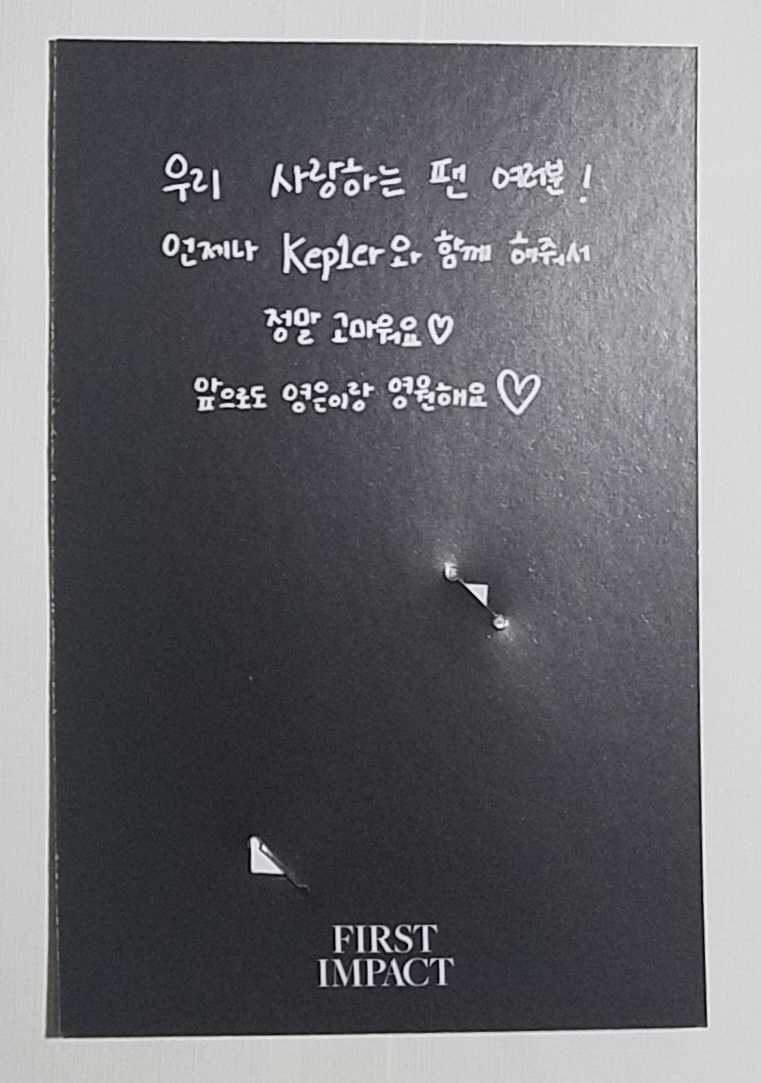 우리 사랑하는 팬 여러분!
언제나 Kep1er와 함께 해줘서
정말 고마워요♡
앞으로도 영은이랑 영원해요♡
FIRST
IMPACT